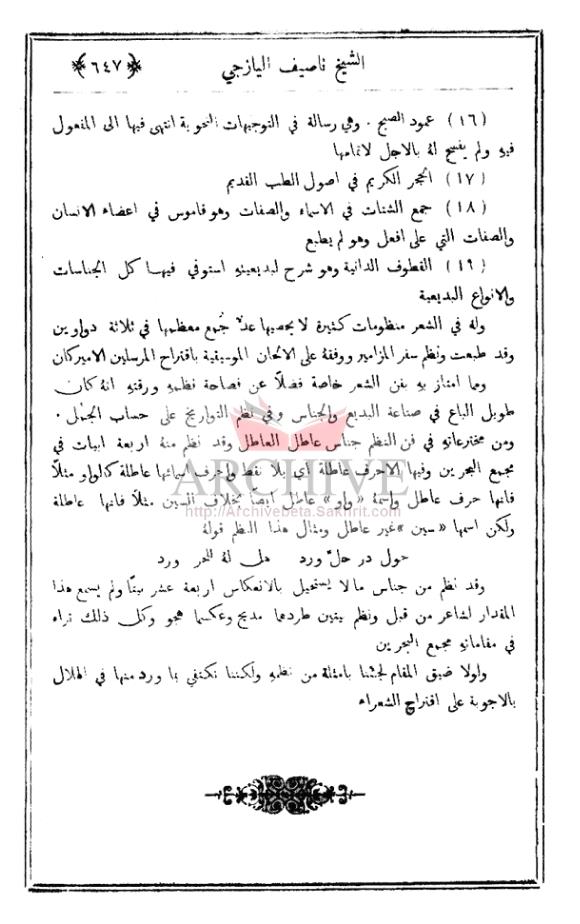 الشيخ ناصيف اليازجي ﴿٦٤٧﴾
(١٦) عمود الصبح . وهي رسالة في التوجيهات النحوية انتهى فيها الى المفعول
فيهِ ولم يفسح لهُ بالاجل لاتمامها
(١٧) الحجر الكريم في اصول الطب القديم
(١٨) جمع الشتات في الاسماء والصفات وهو قاموس في اعضاء الانسان
والصفات التي على افعل وهو لم يطبع
(١٩) القطوف الدانية وهو شرح لبديعيتهِ استوفى فيها كل الجناسات
والانواع البديعية
وله في الشعر منظومات كثيرة لا يحصيها عدٌّ جُمع معظمها في ثلاثة دواوين
وقد طبعت ونظم سفر المزامير ووقفهُ على الالحان الموسيقية باقتراح المرسلين الاميركان
ومما امتاز بهِ بفن الشعر خاصة فضلاً عن فصاحة نظمهِ ورقتهِ انهُ كان
طويل الباع في صناعة البديع والجناس وفي نظم التواريخ على حساب الجمّل .
ومن مخترعاتهِ في فن النظم جناس عاطل العاطل وقد نظم منهُ اربعة ابيات في
مجمع البحرين وفيها الاحرف عاطلة اي بلا نقط واحرف اسمائها عاطلة كالواو مثلاً
فانها حرف عاطل واسمهُ «واو» عاطل ايضاً بخلاف السين مثلاً فانها عاطلة
ولكن اسمها «سين» غير عاطل ومثال هذا النظم قولهُ
حول در حلّ ورد هل لهُ للحر ورد
وقد نظم من جناس ما لا يستحيل بالانعكاس اربعة عشر بيتاً ولم يسمع هذا
المقدار لشاعر من قبل ونظم بيتين طردهما مديح وعكسهما هجو وكل ذلك تراه
في مقاماتهِ مجمع البحرين
ولولا ضيق المقام لجئنا بامثلة من نظمهِ ولكننا نكتفي بما ورد منها في الهلال
بالاجوبة على اقتراح الشعراء
ARCHIVE
http://Archivebeta.Sakhrit.com